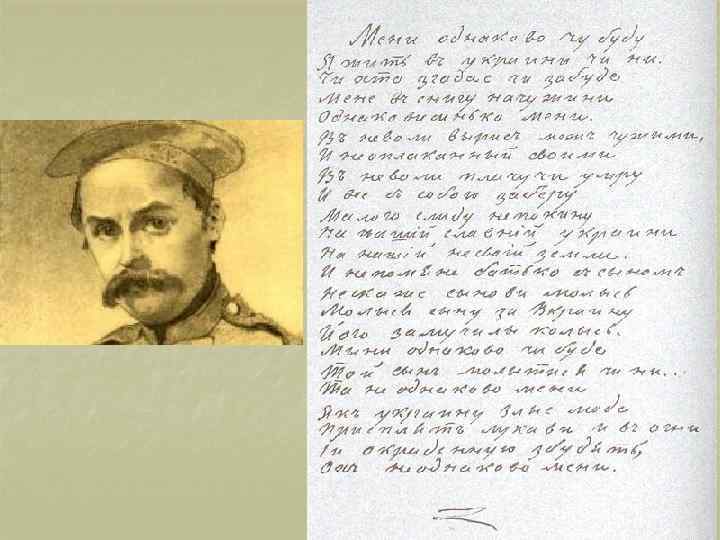 Мени однаково чу буду
Я жить въ украини чи ни.
Чи хто згадае чи забуде
Мене въ снигу на чужини
Однаковисинько мени.
Въ неволи вырисъ межъ чужыми,
И неоплаканный своими
Въ неволи плачучи умру
И все съ собою заберу
Малого слиду непокину
На нашій славній украини
На нашій несвоій земли.
И непомяне батько съ сыномъ
Нескаже сынови молысь
Молысь сыну за Вкраину
Його замучилы колысь.
Мини однаково чи буде
Той сынъ молытися чи ни...
Та не однаково мени
Якъ украину злые люде
Присплять лукави и въ огни
Іи окраденную збудять,
Охъ неоднаково мени.